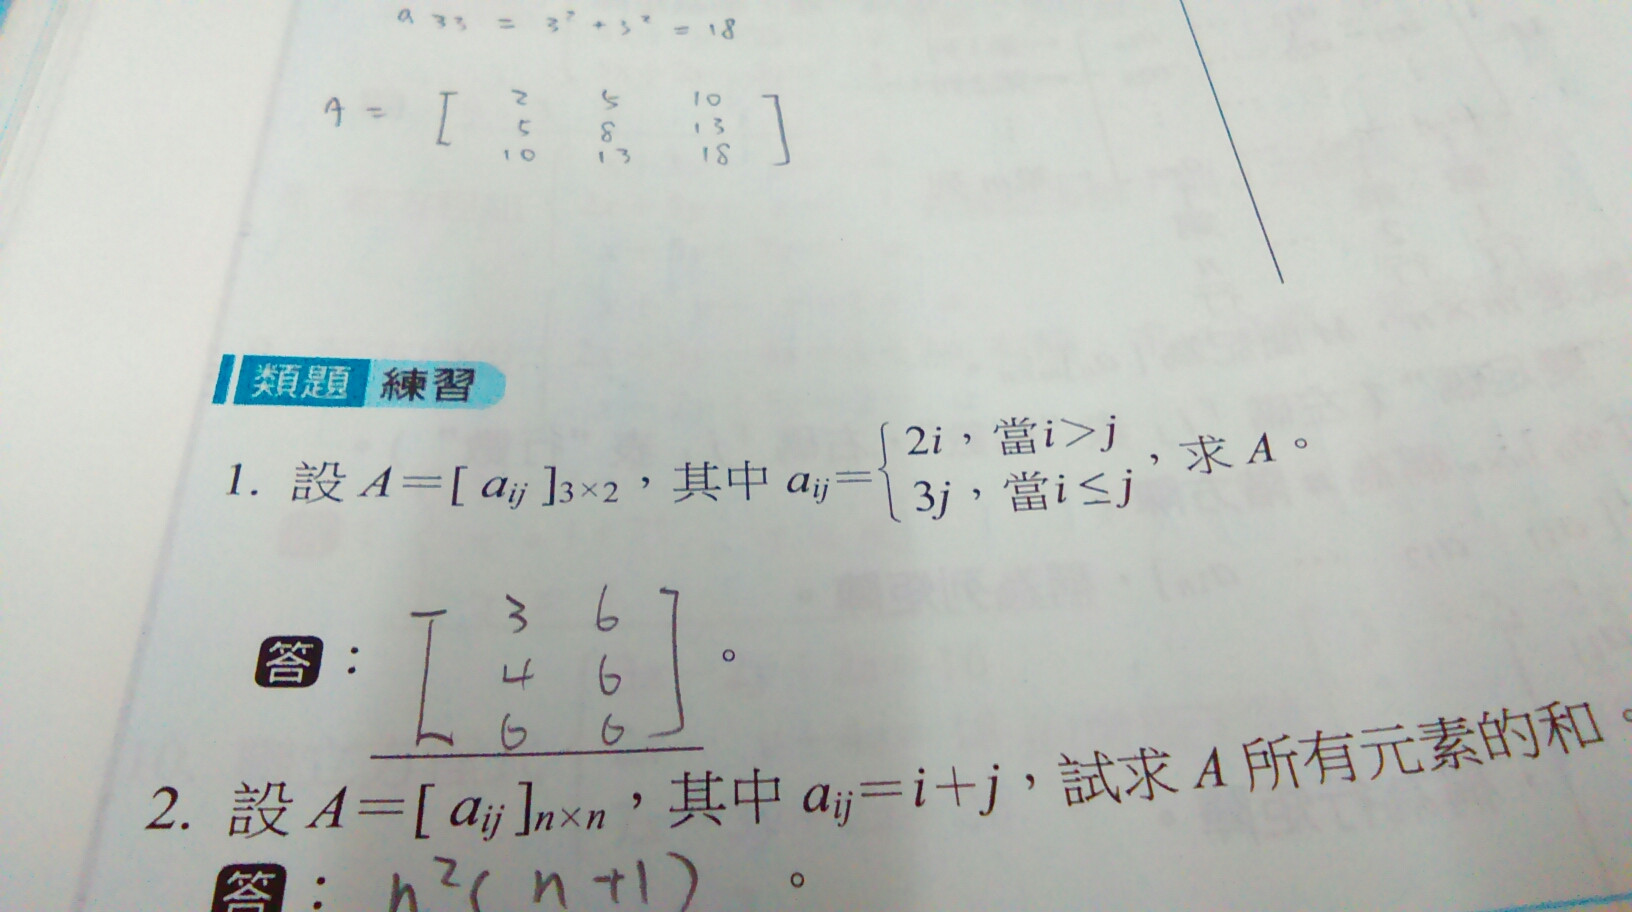 a 33 = 3² + 3² = 18
A = [ 2 5 10
5 8 13
10 13 18 ]
類題 練習
1. 設 A=[ aij ]3×2，其中 aij={ 2i，當i>j
3j，當i≤j ，求 A。
答：[ 3 6
4 6
6 6 ]。
2. 設 A=[ aij ]n×n，其中 aij=i+j，試求 A 所有元素的和。
答：n²( n+1) 。